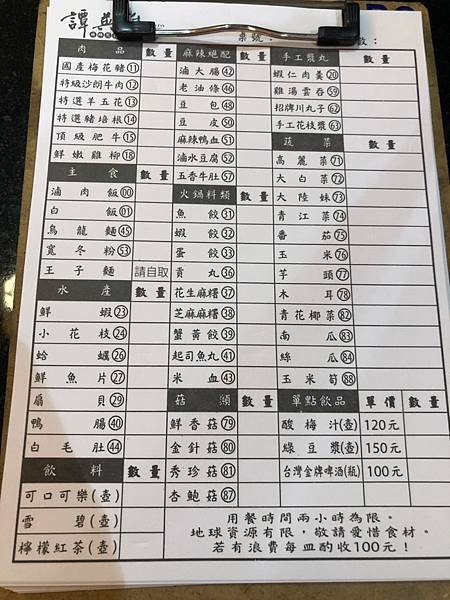 譚
桌號：
數：
肉品 數量
國產梅花豬⑪
特級沙朗牛肉⑫
特選羊五花⑬
特選豬培根⑭
頂級肥牛⑮
鮮嫩雞柳⑱
主食 數量
滷肉飯⓪⓪
白飯⓪①
烏龍麵㊺
寬冬粉53
王子麵 請自取
水產 數量
鮮蝦㉓
小花枝㉔
蛤蠣㉖
鮮魚片㉗
扇貝㉙
鴨腸㊵
白毛肚㊹
飲料 數量
可口可樂(壺)
雪碧(壺)
檸檬紅茶(壺)
麻辣絕配 數量
滷大腸㊷
老油條㊻
豆包㊽
豆皮㊿
麻辣鴨血51
滷水豆腐52
五香牛肚57
火鍋料類 數量
魚餃㉛
蝦餃㉜
蛋餃㉝
貢丸㊱
花生麻糬㊲
芝麻麻糬㊳
蟹黃餃㊴
起司魚丸㊶
米血㊸
菇類 數量
鮮香菇79
金針菇80
秀珍菇81
杏鮑菇87
手工漿丸 數量
蝦仁肉羹⑳
雞湯雲吞59
招牌川丸子62
手工花枝漿63
蔬菜 數量
高麗菜71
大白菜72
大陸妹73
青江菜74
番茄75
玉米76
芋頭77
木耳78
青花椰菜82
南瓜83
絲瓜84
玉米筍88
單點飲品 單價 數量
酸梅汁(壺) 120元
綠豆漿(壺) 150元
台灣金牌啤酒(瓶) 100元
用餐時間兩小時為限。
地球資源有限，敬請愛惜食材。
若有浪費每皿酌收100元！